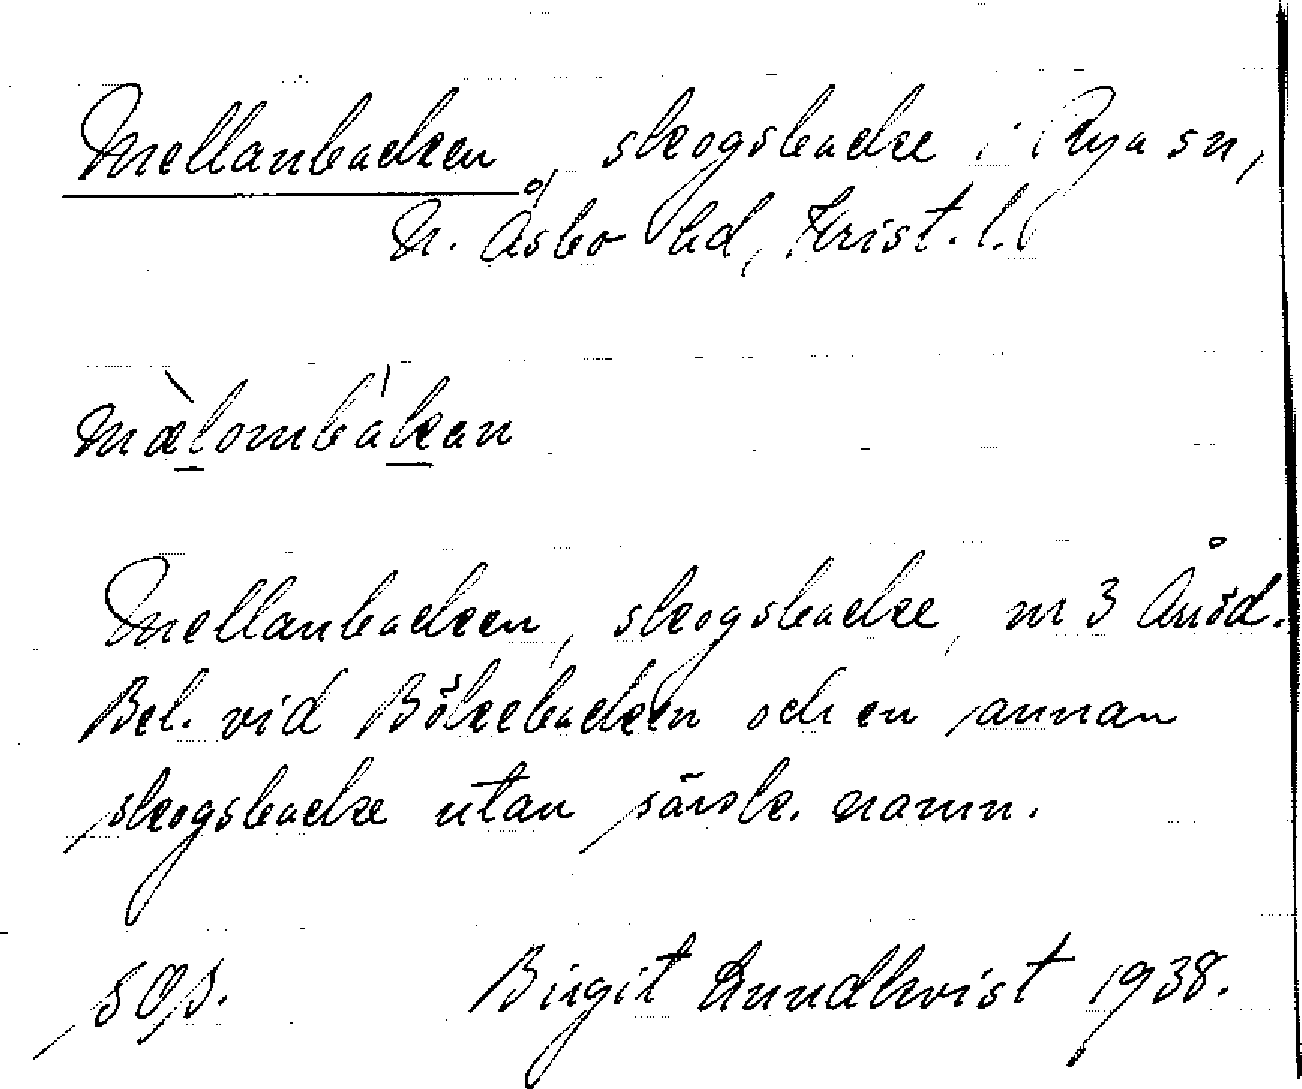 Mellanbacken, skogsbacke i Rya sn,
N. Åsbo hd, Krist. l.
mælombakan
Mellanbacken, skogsbacke, nr 3 Åröd.
Bel. vid Bökebacken och en annan
skogsbacke utan särsk. namn.
Birgit Lundkvist 1938.